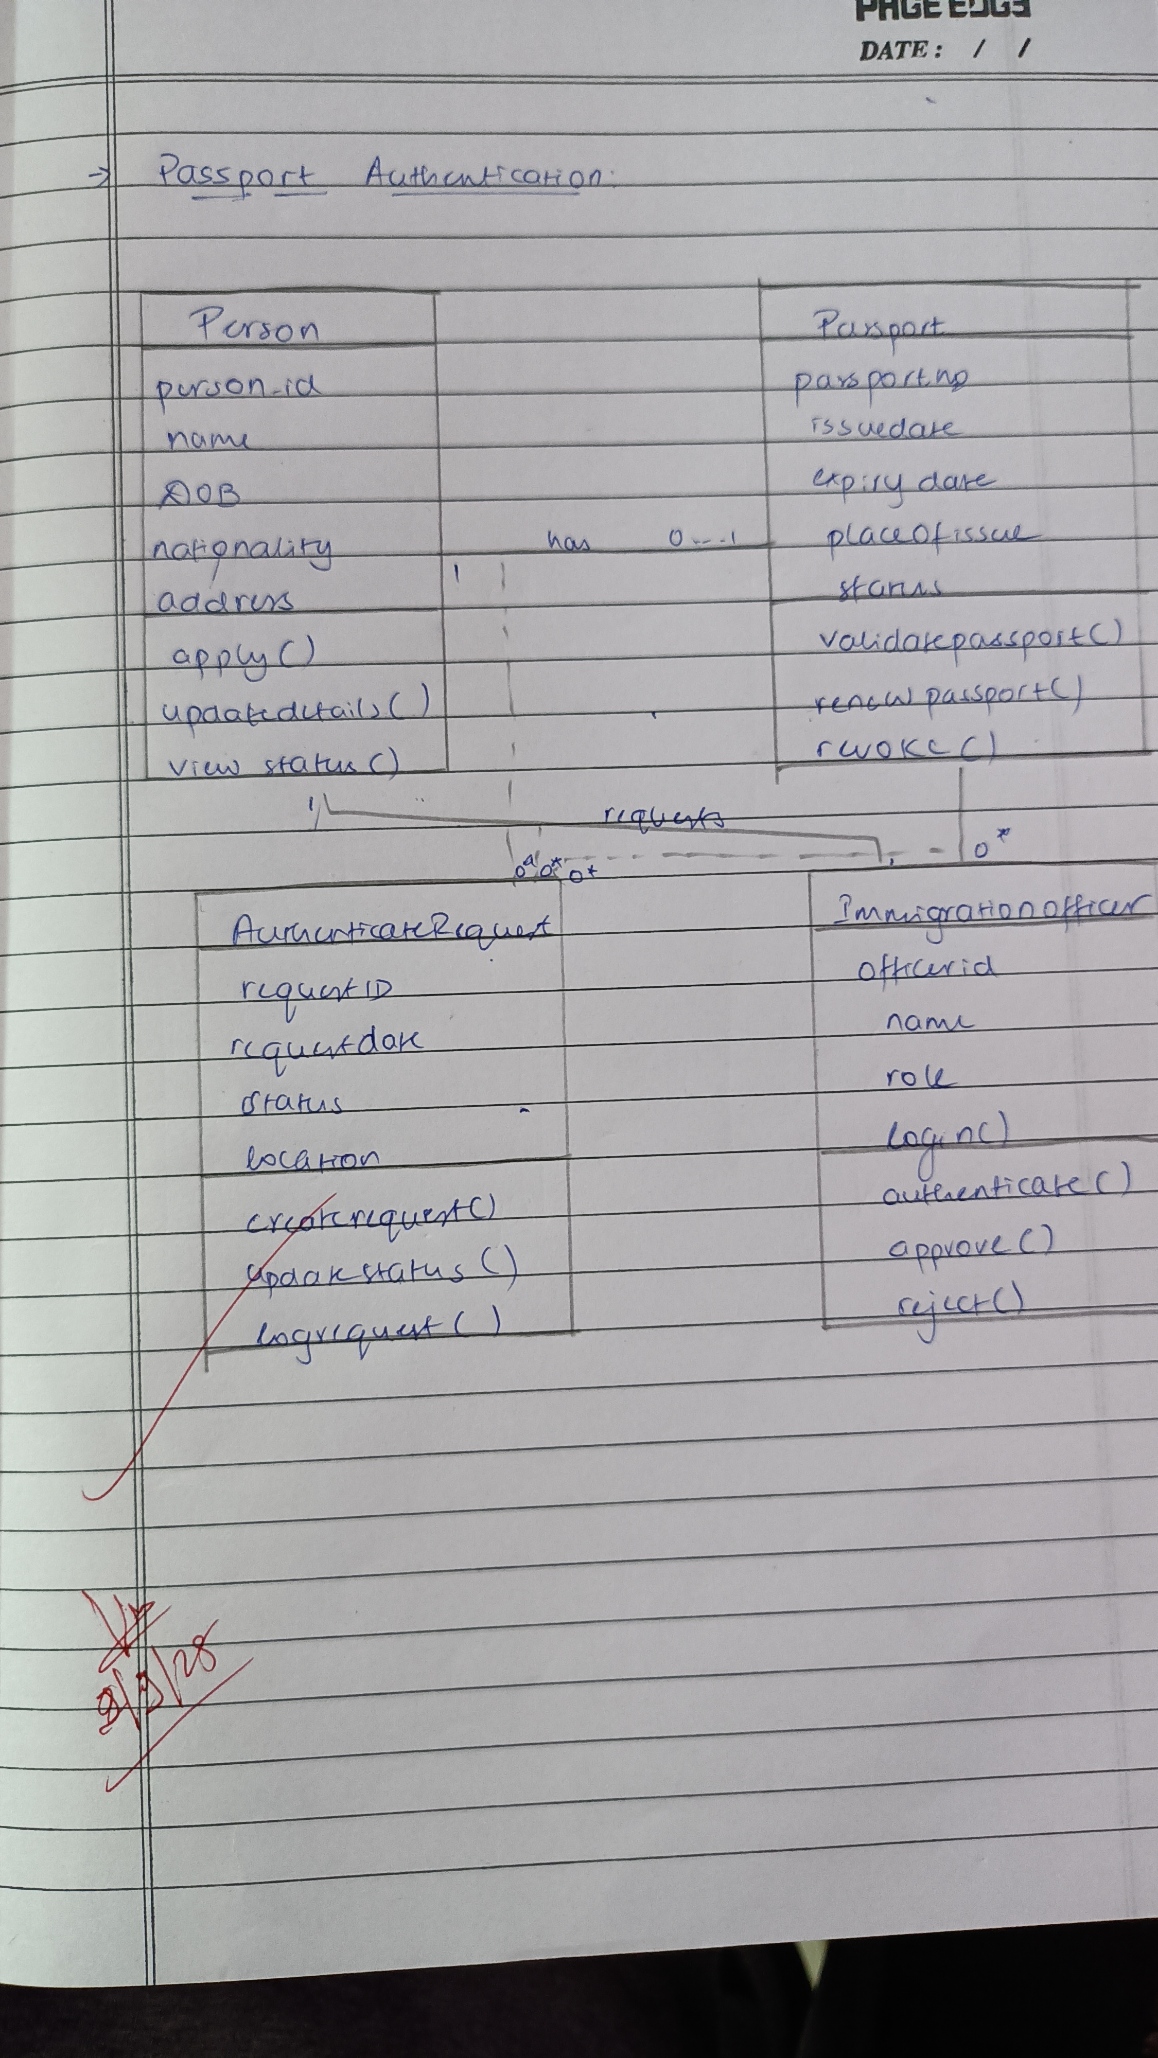 PAGE EDGE
DATE: / /
→ Passport Authentication:
Person
person-id
name
DOB
nationality
address
apply()
updatedetails()
view status()
has 0...1
1
Passport
passportno
issuedate
expiry date
placeOfissue
status
validatepassport()
renewpassport()
revoke()
1
requests
0* 0* 0*
0*
AuthenticateRequest
requestID
requestdate
status
location
createrequest()
updatestatus()
logrequest()
Immigrationofficer
officerid
name
role
login()
authenticate()
approve()
reject()